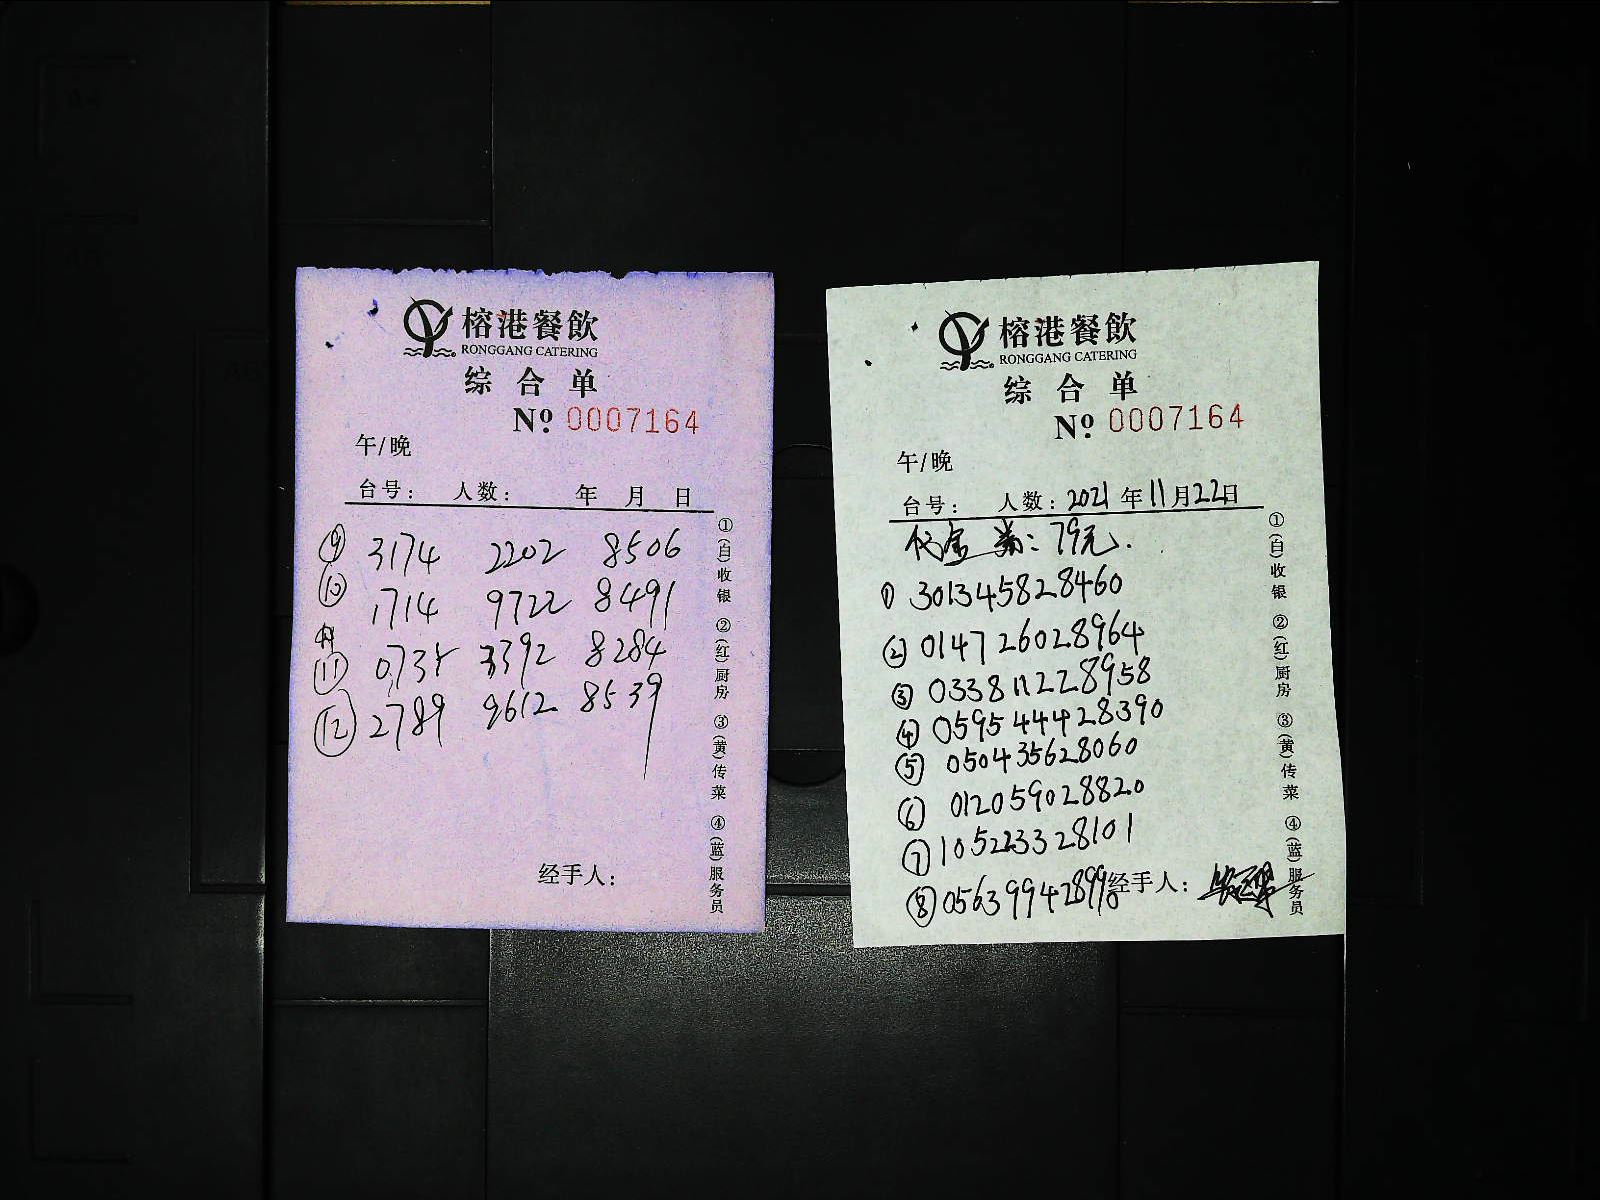 榕港餐飲
RONGGANG CATERING
综合单
Nº 0007164
午/晚
台号： 人数： 年 月 日
⑨ 3174 2202 8506
⑩ 1714 9722 8491
⑪ 0735 3392 8284
⑫ 2789 9612 8539
经手人：
①(白)收银 ②(红)厨房 ③(黄)传菜 ④(蓝)服务员
榕港餐飲
RONGGANG CATERING
综合单
Nº 0007164
午/晚
台号： 人数：2021年11月22日
代金券：79元.
① 301345828460
② 014726028964
③ 033811228958
④ 059544428390
⑤ 050435628060
⑥ 012059028820
⑦ 105223328101
⑧ 056399428998
经手人：
①(白)收银 ②(红)厨房 ③(黄)传菜 ④(蓝)服务员